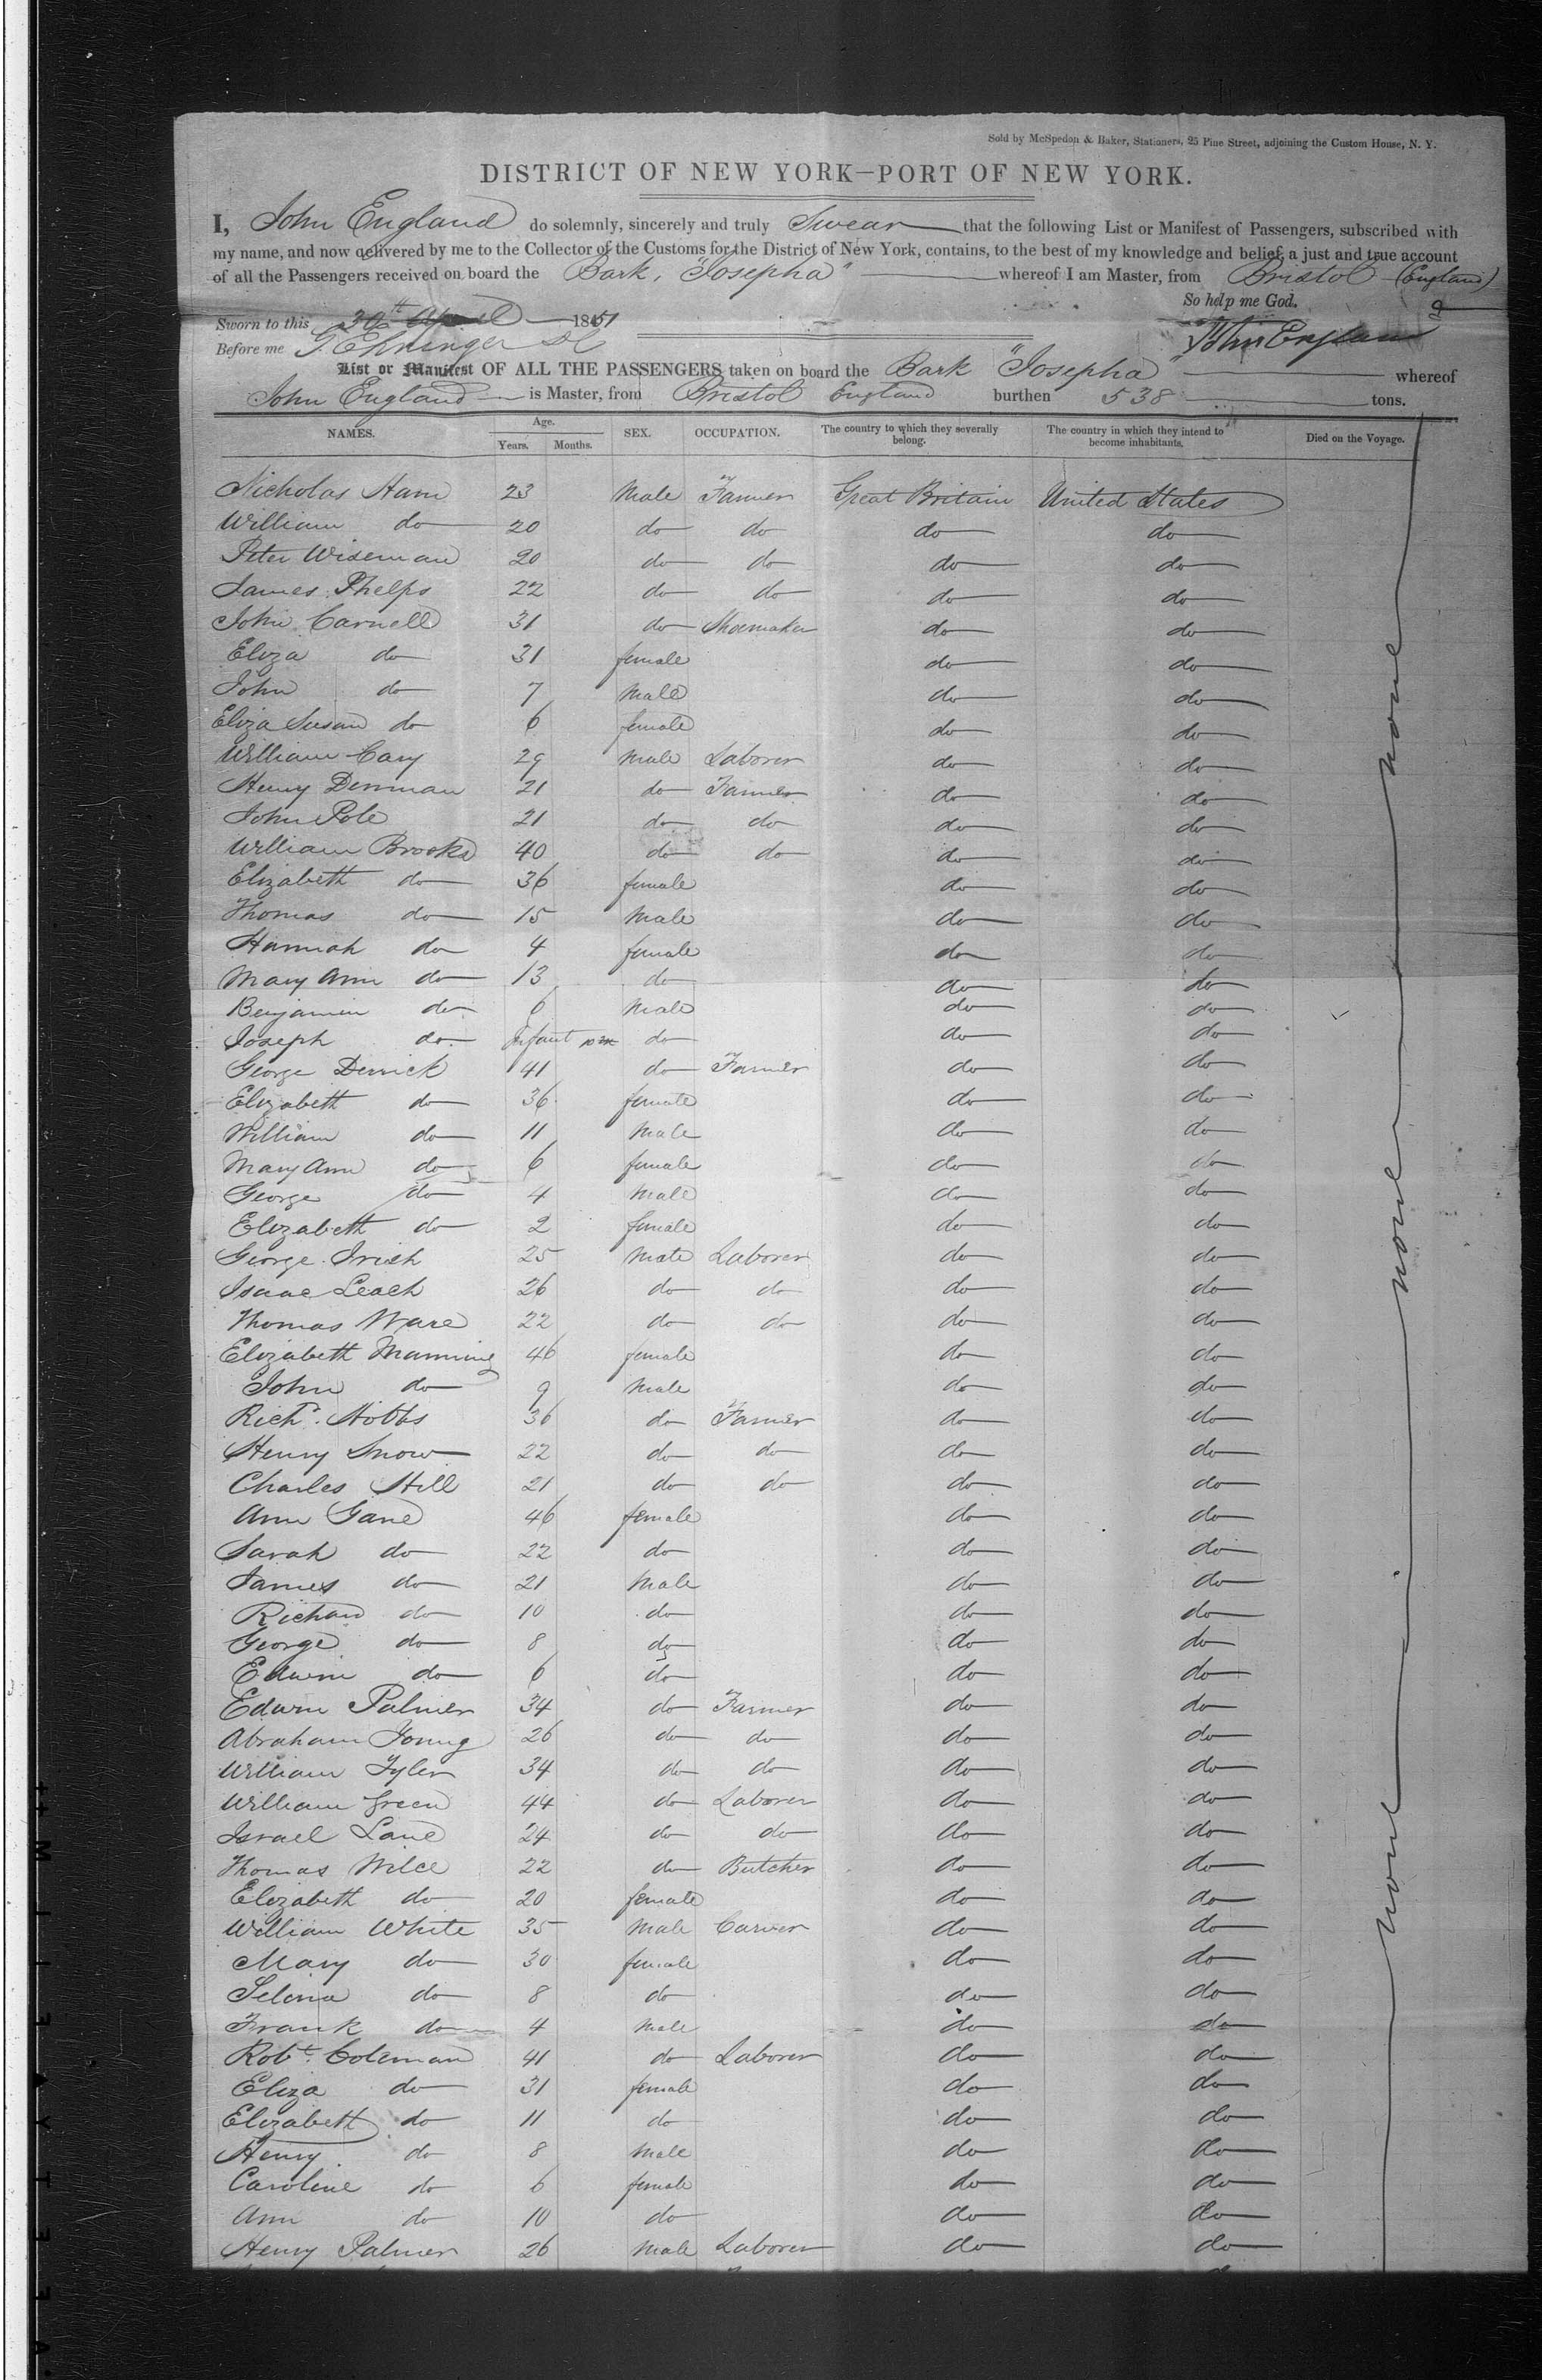 Sold by McSpedon & Baker, Stationers, 25 Pine Street, adjoining the Custom House, N. Y.
DISTRICT OF NEW YORK—PORT OF NEW YORK.
I, John England do solemnly, sincerely and truly Swear that the following List or Manifest of Passengers, subscribed with
my name, and now delivered by me to the Collector of the Customs for the District of New York, contains, to the best of my knowledge and belief, a just and true account
of all the Passengers received on board the Bark, "Josepha" whereof I am Master, from Bristol (England)
So help me God.
Sworn to this 30th April 1851
John England
Before me
List or Manifest OF ALL THE PASSENGERS taken on board the Bark "Josepha" whereof
John England is Master, from Bristol England burthen 538 tons.
NAMES. Age. Years. Months. SEX. OCCUPATION. The country to which they severally belong. The country in which they intend to become inhabitants. Died on the Voyage.
Nicholas Ham 23 Male Farmer Great Britain United States
William do 20 do do do do
Peter Wiseman 20 do do do do
James Phelps 22 do do do do
John Carnell 31 do Shoemaker do do
Eliza do 31 female do do
John do 7 Male do do
Eliza Susan do 6 female do do
William Cary 29 Male Laborer do do
Henry Denman 21 do Farmer do do
John Pole 21 do do do do
William Brooks 40 do do do do
Elizabeth do 36 female do do
Thomas do 15 Male do do
Hannah do 4 female do do
Mary Ann do 13 do do do
Benjamin do 6 Male do do
Joseph do Infant 10 m do do do
George Derrick 41 do Farmer do do
Elizabeth do 36 female do do
William do 11 Male do do
Mary Ann do 6 female do do
George do 4 Male do do
Elizabeth do 2 female do do
George Irish 25 Male Laborer do do
Isaac Leach 26 do do do do
Thomas Ware 22 do do do do
Elizabeth Manning 46 female do do
John do 9 Male do do
Richd. Hobbs 36 do Farmer do do
Henry Snow 22 do do do do
Charles Hill 21 do do do do
Ann Gane 46 female do do
Sarah do 22 do do do
James do 21 Male do do
Richard do 10 do do do
George do 8 do do do
Edwin do 6 do do do
Edwin Palmer 34 do Farmer do do
Abraham Young 26 do do do do
William Tyler 34 do do do do
William Green 44 do Laborer do do
Israel Lane 24 do do do do
Thomas Wilce 22 do Butcher do do
Elizabeth do 20 female do do
William White 35 Male Carver do do
Mary do 30 female do do
Selina do 8 do do do
Frank do 4 Male do do
Robt. Coleman 41 do Laborer do do
Eliza do 31 female do do
Elizabeth do 11 do do do
Henry do 8 Male do do
Caroline do 6 female do do
Ann do 10 do do do
Henry Palmer 26 Male Laborer do do
none none none